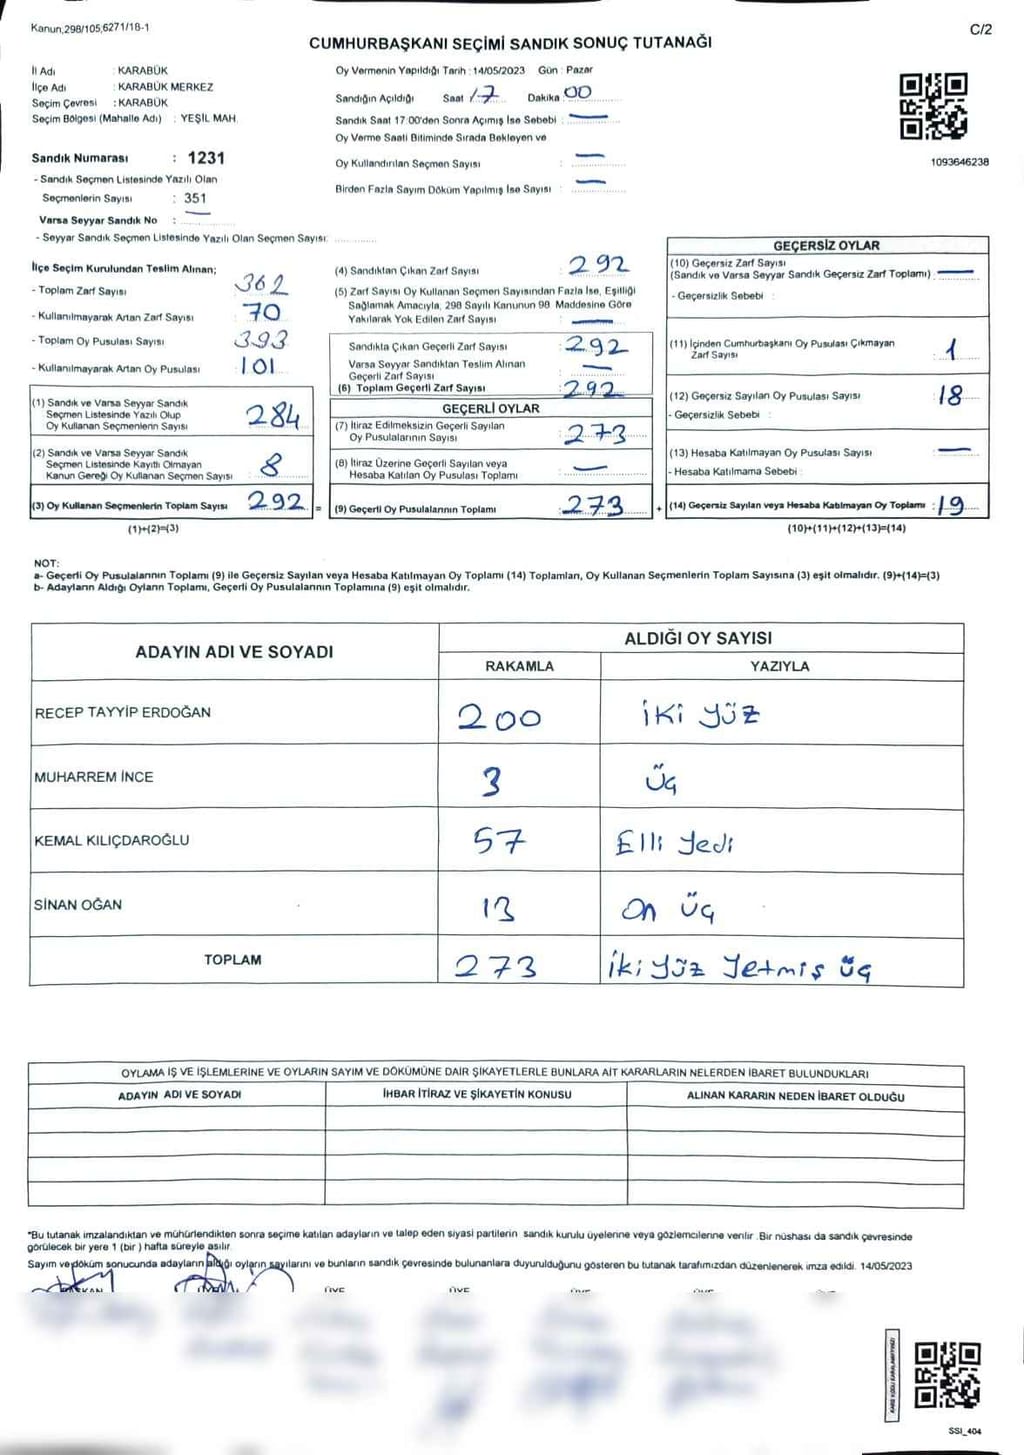 Kanun,298/105,6271/18-1
C/2
CUMHURBAŞKANI SEÇİMİ SANDIK SONUÇ TUTANAĞI
İl Adı : KARABÜK
İlçe Adı : KARABÜK MERKEZ
Seçim Çevresi : KARABÜK
Seçim Bölgesi (Mahalle Adı) : YEŞİL MAH.
Sandık Numarası : 1231
- Sandık Seçmen Listesinde Yazılı Olan
Seçmenlerin Sayısı : 351
Varsa Seyyar Sandık No : —
- Seyyar Sandık Seçmen Listesinde Yazılı Olan Seçmen Sayısı:
Oy Vermenin Yapıldığı Tarih : 14/05/2023 Gün : Pazar
Sandığın Açıldığı Saat 17 Dakika 00
Sandık Saat 17:00'den Sonra Açımış İse Sebebi : —
Oy Verme Saati Bitiminde Sırada Bekleyen ve
Oy Kullandırılan Seçmen Sayısı : —
Birden Fazla Sayım Döküm Yapılmış İse Sayısı : —
1093646238
İlçe Seçim Kurulundan Teslim Alınan;
- Toplam Zarf Sayısı 362
- Kullanılmayarak Artan Zarf Sayısı 70
- Toplam Oy Pusulası Sayısı 393
- Kullanılmayarak Artan Oy Pusulası 101
(1) Sandık ve Varsa Seyyar Sandık
Seçmen Listesinde Yazılı Olup
Oy Kullanan Seçmenlerin Sayısı 284
(2) Sandık ve Varsa Seyyar Sandık
Seçmen Listesinde Kayıtlı Olmayan
Kanun Gereği Oy Kullanan Seçmen Sayısı : 8
(3) Oy Kullanan Seçmenlerin Toplam Sayısı 292 =
(1)+(2)=(3)
(4) Sandıktan Çıkan Zarf Sayısı : 292
(5) Zarf Sayısı Oy Kullanan Seçmen Sayısından Fazla İse, Eşitliği
Sağlamak Amacıyla, 298 Sayılı Kanunun 98. Maddesine Göre
Yakılarak Yok Edilen Zarf Sayısı : —
Sandıkta Çıkan Geçerli Zarf Sayısı : 292
Varsa Seyyar Sandıktan Teslim Alınan
Geçerli Zarf Sayısı : —
(6) Toplam Geçerli Zarf Sayısı : 292
GEÇERLİ OYLAR
(7) İtiraz Edilmeksizin Geçerli Sayılan
Oy Pusulalarının Sayısı : 273
(8) İtiraz Üzerine Geçerli Sayılan veya
Hesaba Katılan Oy Pusulası Toplamı : —
(9) Geçerli Oy Pusulalarının Toplamı : 273 +
GEÇERSİZ OYLAR
(10) Geçersiz Zarf Sayısı
(Sandık ve Varsa Seyyar Sandık Geçersiz Zarf Toplamı) : —
- Geçersizlik Sebebi :
(11) İçinden Cumhurbaşkanı Oy Pusulası Çıkmayan
Zarf Sayısı : 1
(12) Geçersiz Sayılan Oy Pusulası Sayısı : 18
- Geçersizlik Sebebi :
(13) Hesaba Katılmayan Oy Pusulası Sayısı : —
- Hesaba Katılmama Sebebi :
(14) Geçersiz Sayılan veya Hesaba Katılmayan Oy Toplamı : 19
(10)+(11)+(12)+(13)=(14)
NOT:
a- Geçerli Oy Pusulalarının Toplamı (9) ile Geçersiz Sayılan veya Hesaba Katılmayan Oy Toplamı (14) Toplamları, Oy Kullanan Seçmenlerin Toplam Sayısına (3) eşit olmalıdır. (9)+(14)=(3)
b- Adayların Aldığı Oyların Toplamı, Geçerli Oy Pusulalarının Toplamına (9) eşit olmalıdır.
ADAYIN ADI VE SOYADI
ALDIĞI OY SAYISI
RAKAMLA YAZIYLA
RECEP TAYYİP ERDOĞAN 200 İki yüz
MUHARREM İNCE 3 üç
KEMAL KILIÇDAROĞLU 57 Elli yedi
SİNAN OĞAN 13 On üç
TOPLAM 273 İki yüz yetmiş üç
OYLAMA İŞ VE İŞLEMLERİNE VE OYLARIN SAYIM VE DÖKÜMÜNE DAİR ŞİKAYETLERLE BUNLARA AİT KARARLARIN NELERDEN İBARET BULUNDUKLARI
ADAYIN ADI VE SOYADI İHBAR İTİRAZ VE ŞİKAYETİN KONUSU ALINAN KARARIN NEDEN İBARET OLDUĞU
*Bu tutanak imzalandıktan ve mühürlendikten sonra seçime katılan adayların ve talep eden siyasi partilerin sandık kurulu üyelerine veya gözlemcilerine verilir. Bir nüshası da sandık çevresinde
görülecek bir yere 1 (bir ) hafta süreyle asılır.
Sayım ve döküm sonucunda adayların aldığı oyların sayılarını ve bunların sandık çevresinde bulunanlara duyurulduğunu gösteren bu tutanak tarafımızdan düzenlenerek imza edildi. 14/05/2023
SSI_404